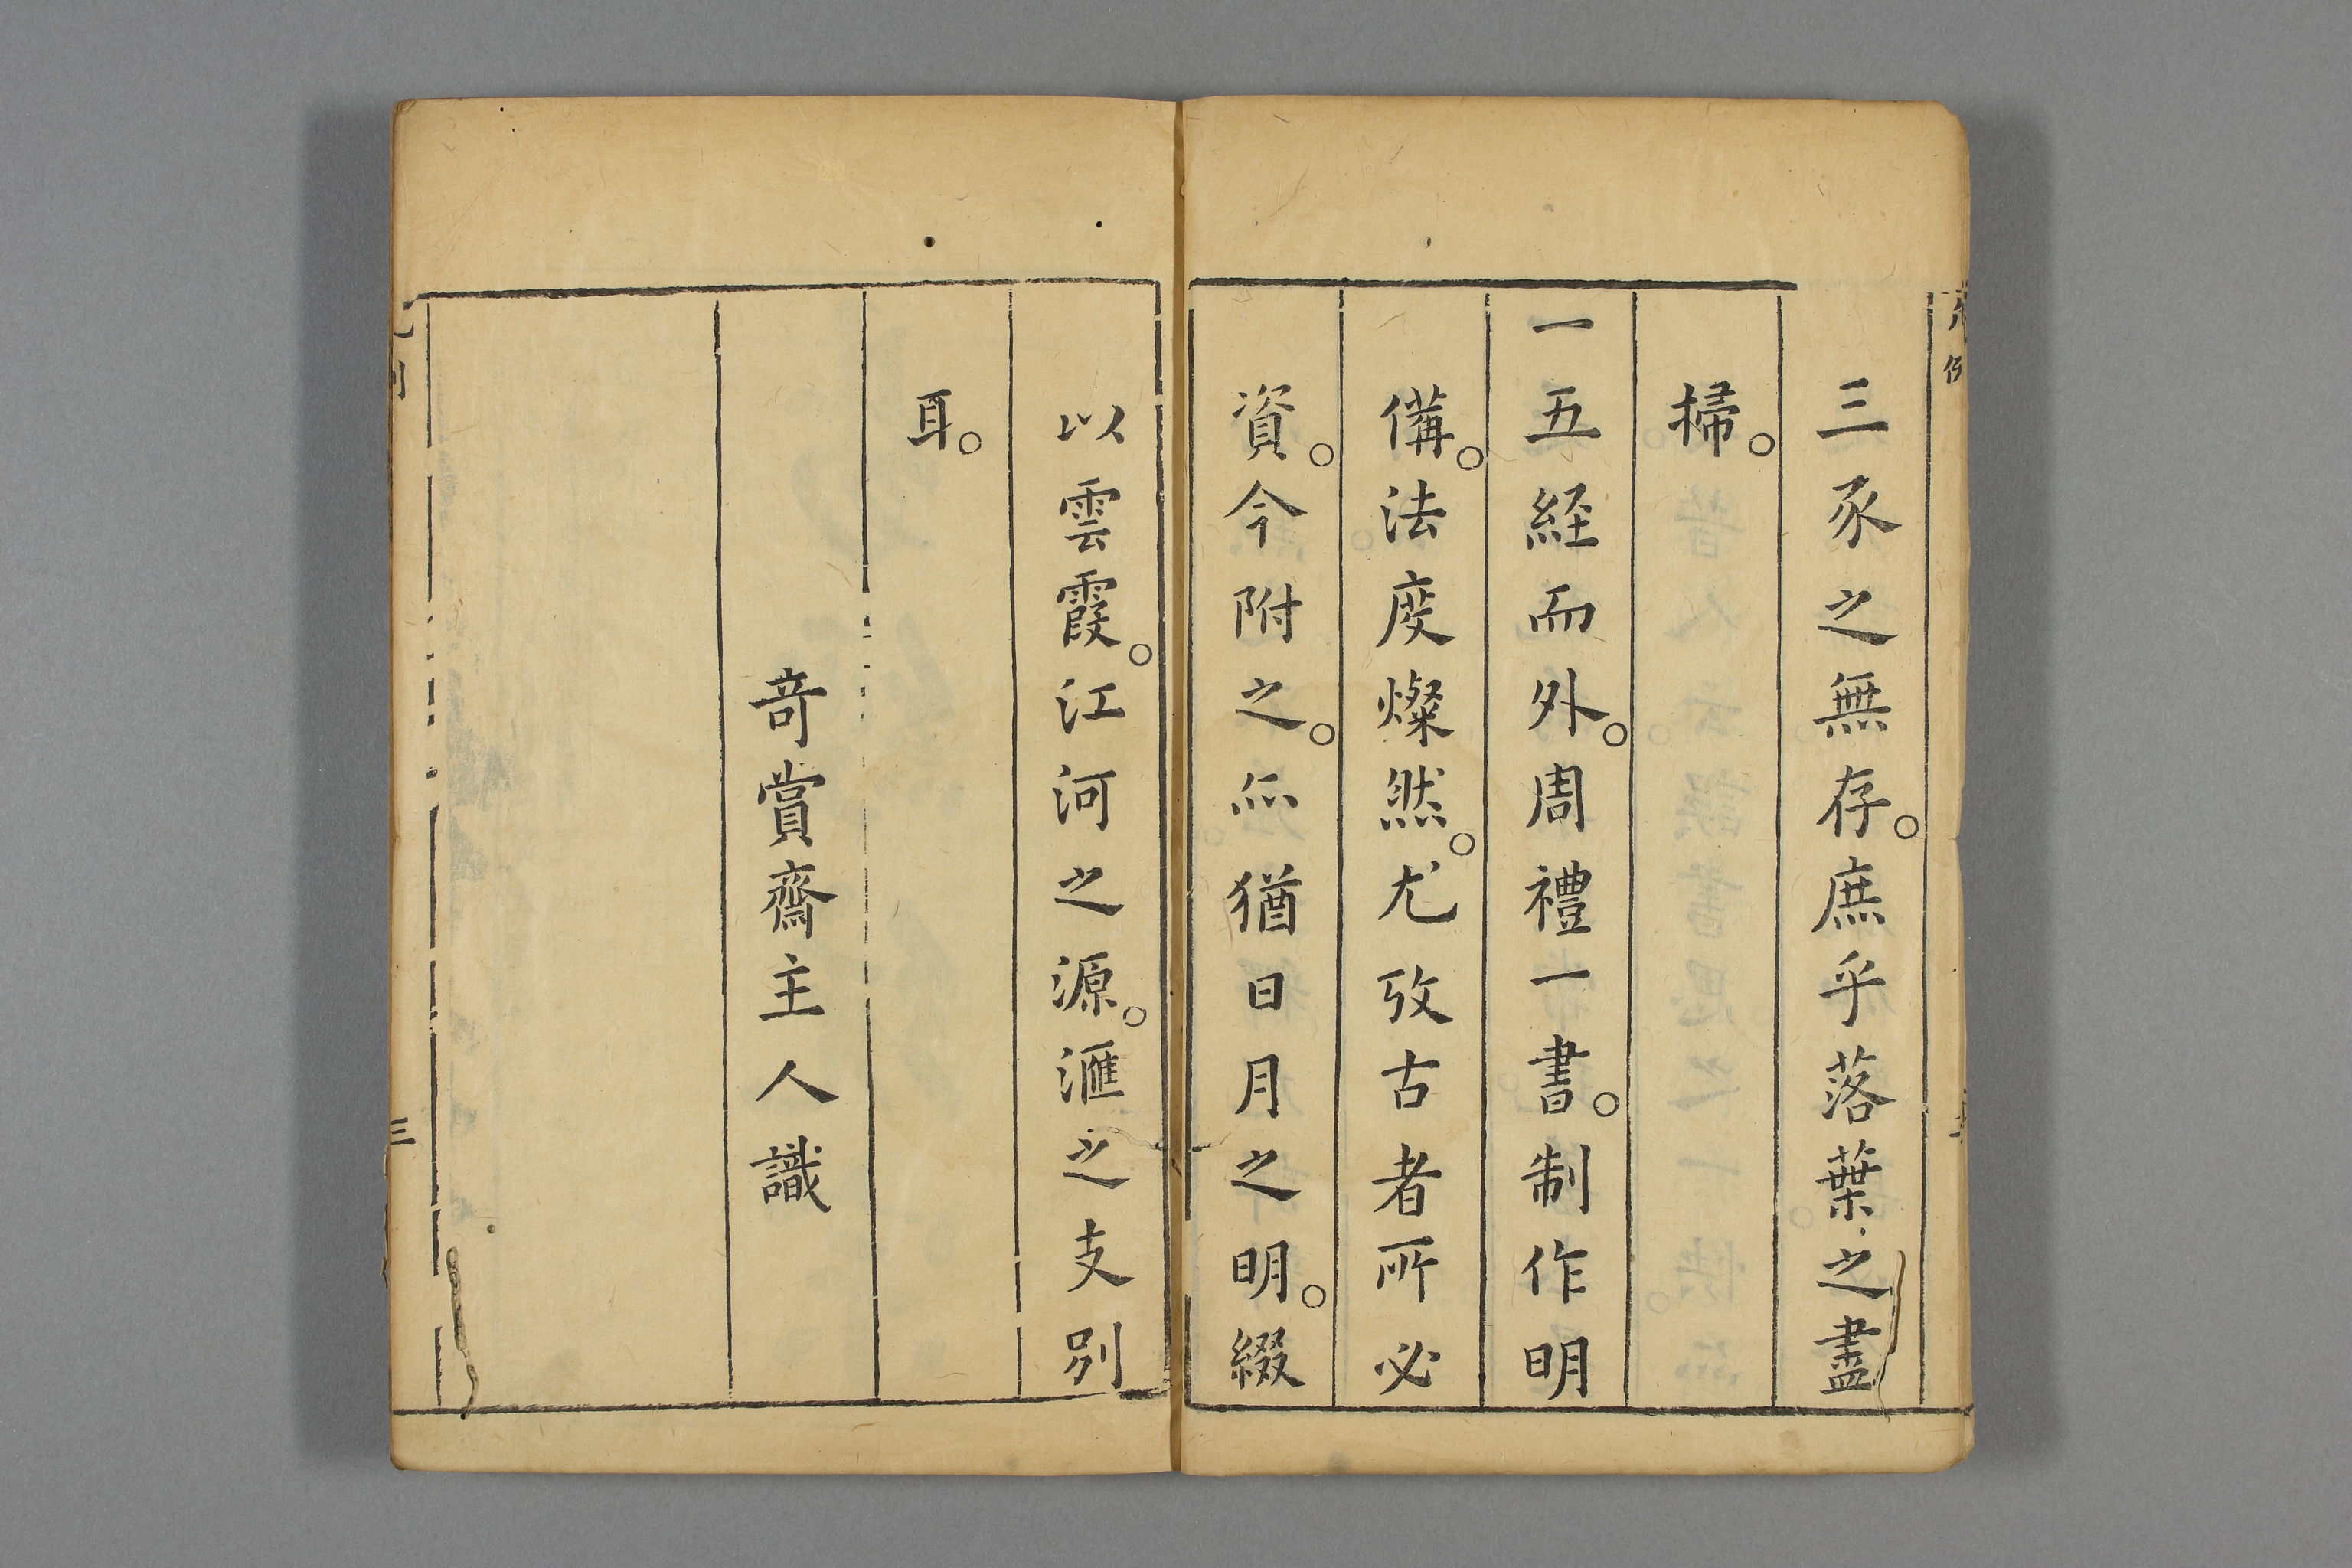 三豕之無存。庶乎落葉之盡
掃。
一五経而外。周禮一書。制作明
備。法度燦然。尤攷古者所必
資。今附之。灬猶日月之明。綴
以雲霞。江河之源。滙之支别
耳。
竒賞齋主人識
三